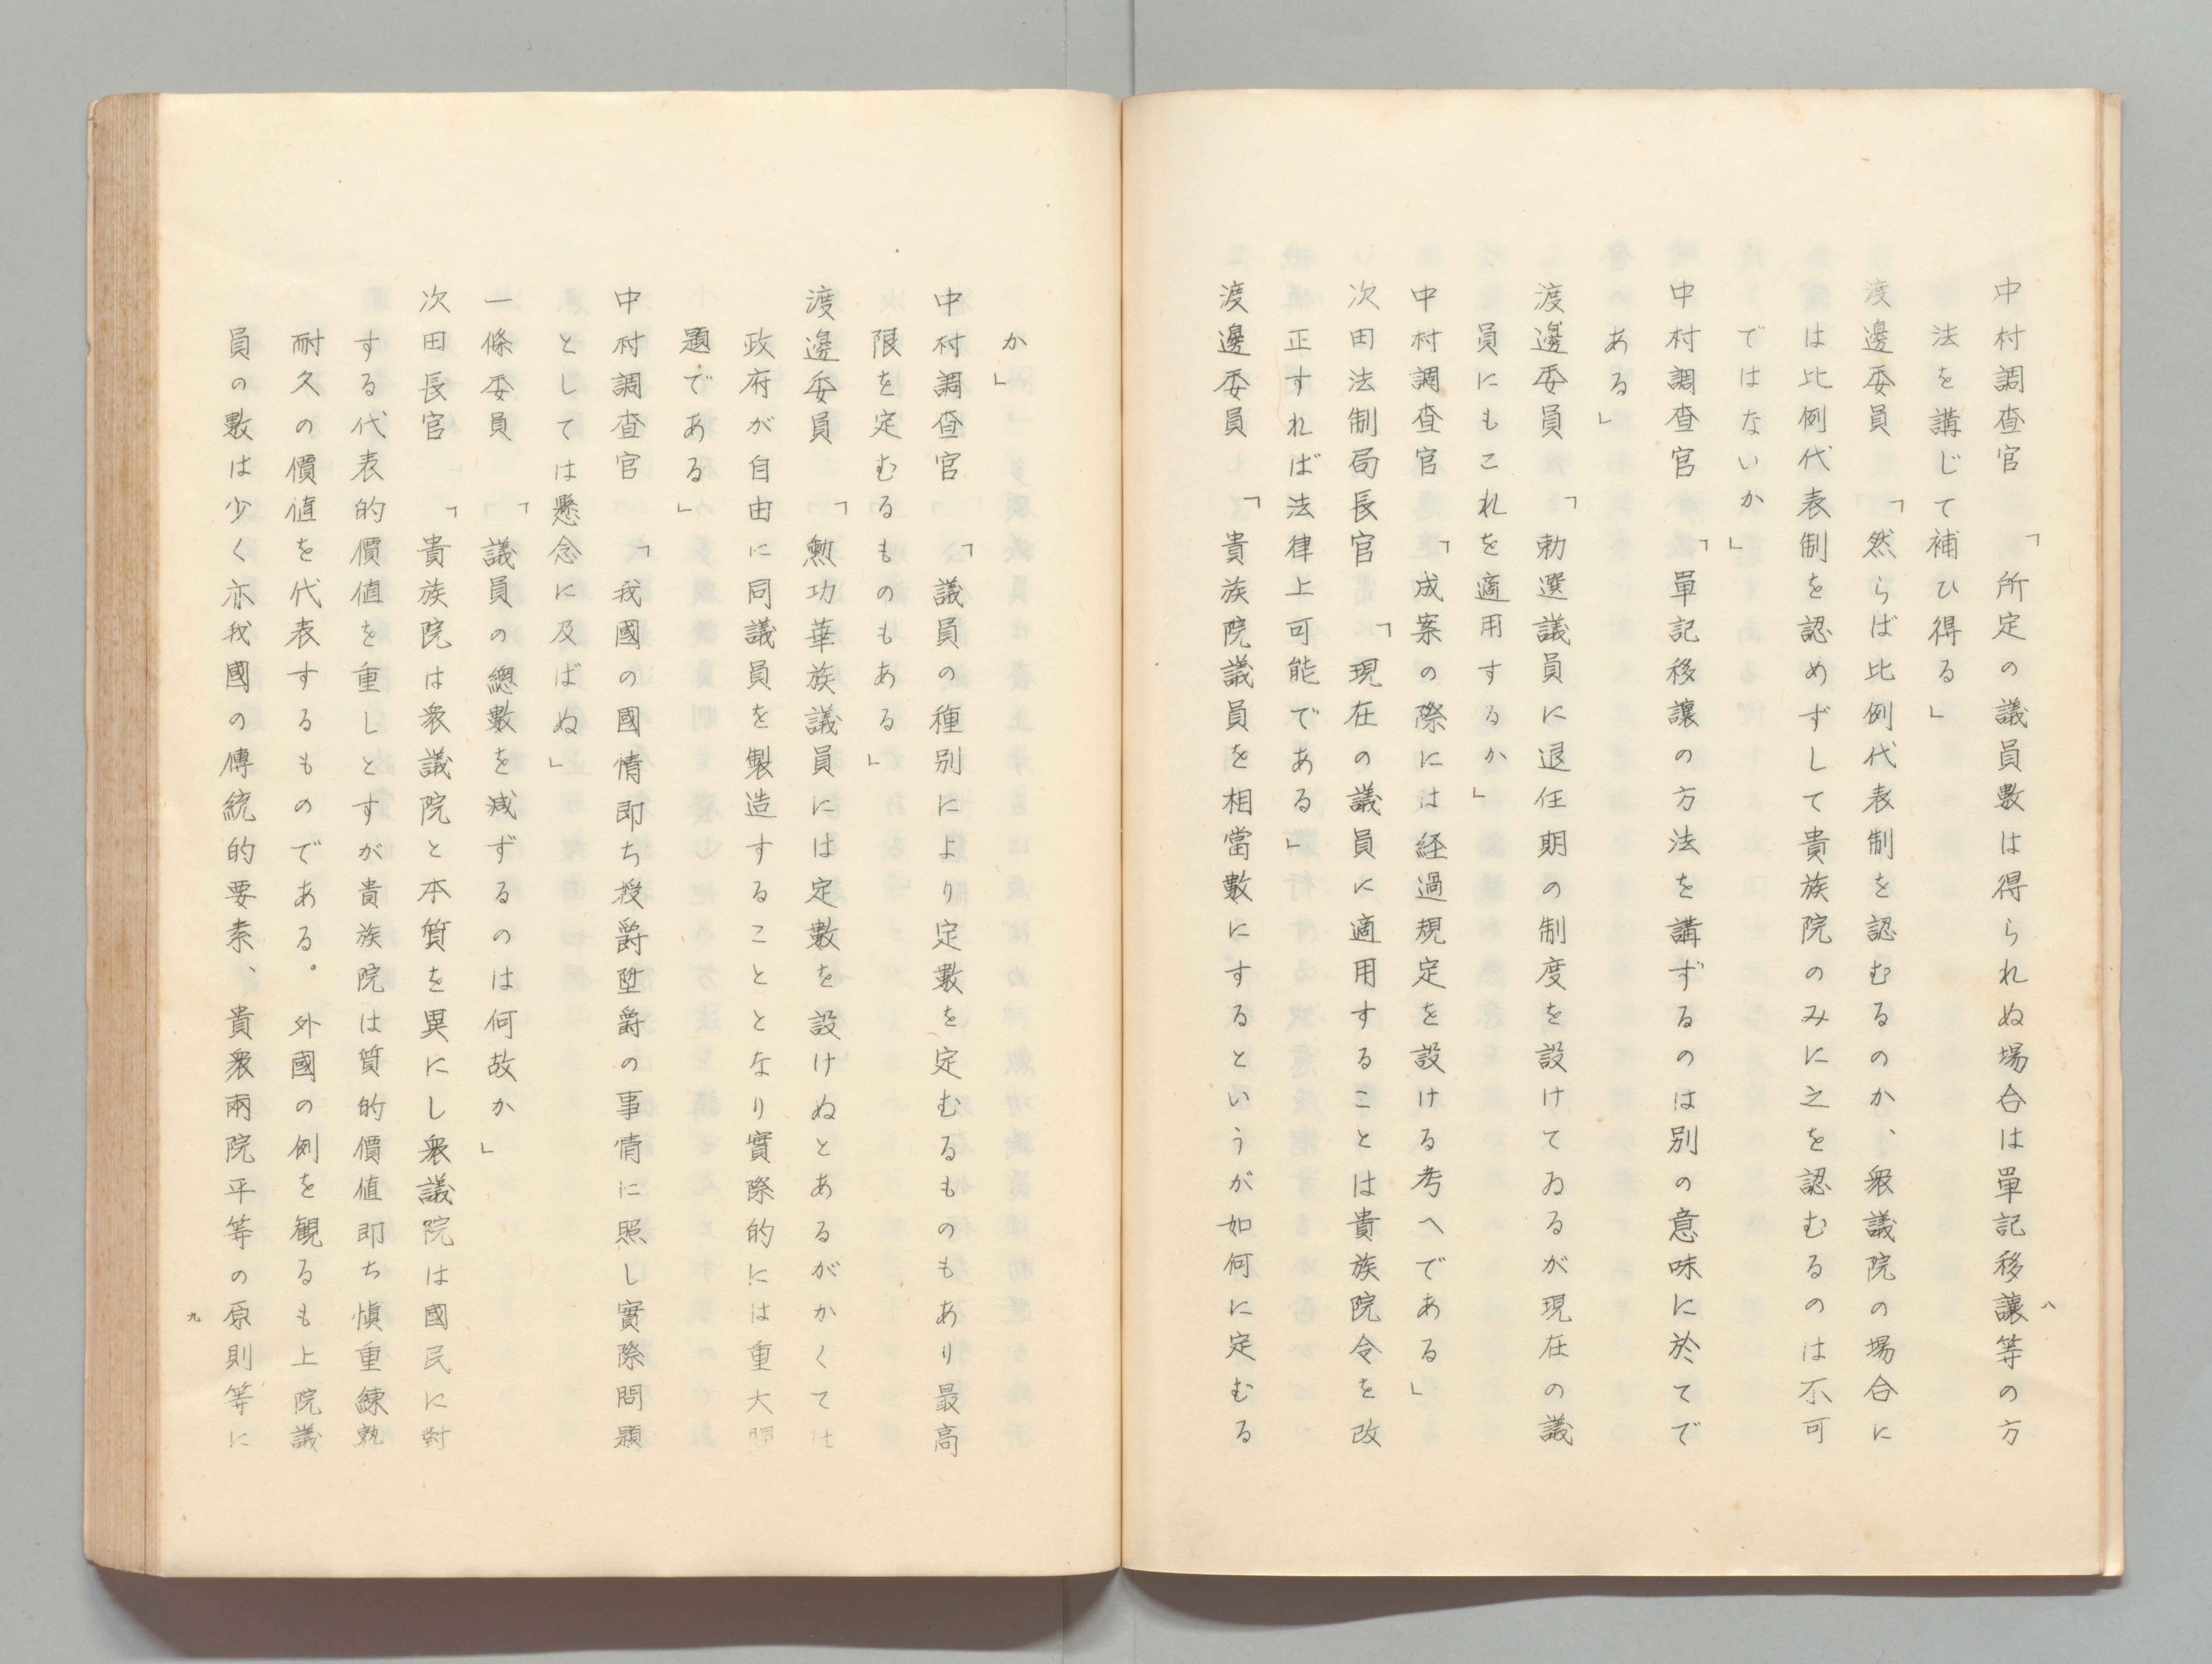 中村調査官　「所定の議員數は得られぬ場合は單記移讓等の方
法を講じて補ひ得る」
渡邊委員　「然らば比例代表制を認むるのか、衆議院の場合に
は比例代表制を認めずして貴族院のみに之を認むるのは不可
ではないか」
中村調査官　「單記移讓の方法を講ずるのは別の意味に於てで
ある」
渡邊委員　「勅選議員に退任期の制度を設けてゐるが現在の議
員にもこれを適用するか」
中村調査官　「成案の際には経過規定を設ける考へである」
次田法制局長官　「現在の議員に適用することは貴族院令を改
正すれば法律上可能である」
渡邊委員　「貴族院議員を相當數にするというが如何に定むる
八
か」
中村調査官　「議員の種別により定數を定むるものもあり最高
限を定むるものもある」
渡邊委員　「勲功華族議員には定數を設けぬとあるがかくては
政府が自由に同議員を製造することとなり實際的には重大問
題である」
中村調査官　「我國の國情即ち授爵陞爵の事情に照し實際問題
としては懸念に及ばぬ」
一條委員　「議員の總數を減ずるのは何故か」
次田長官　「貴族院は衆議院と本質を異にし衆議院は國民に對
する代表的價値を重しとすが貴族院は質的價値即ち愼重練熟
耐久の價値を代表するものである。外國の例を観るも上院議
員の數は少く亦我國の傳統的要素、貴衆兩院平等の原則等に
九